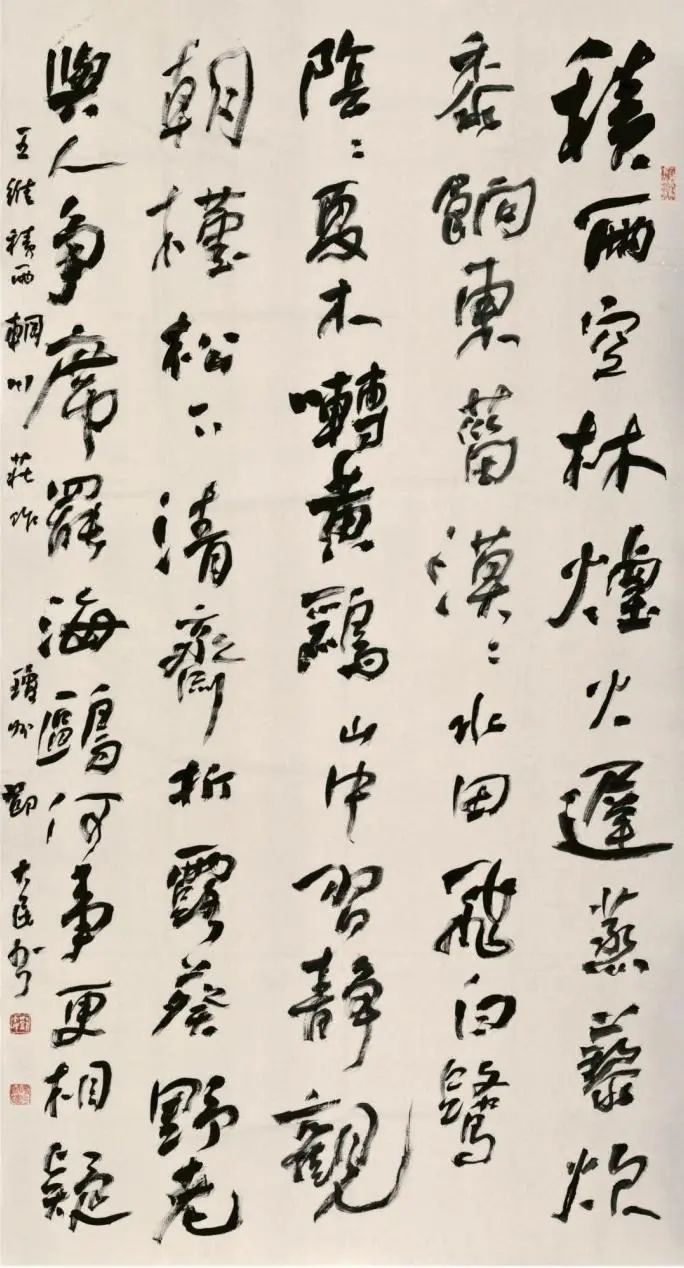 積雨空林煙火遲蒸藜炊
黍餉東菑漠〻水田飛白鷺
陰〻夏木囀黃鸝山中習靜觀
朝槿松下清齋折露葵野老
與人爭席罷海鷗何事更相疑
王維積雨輞川莊作 鄧大民書